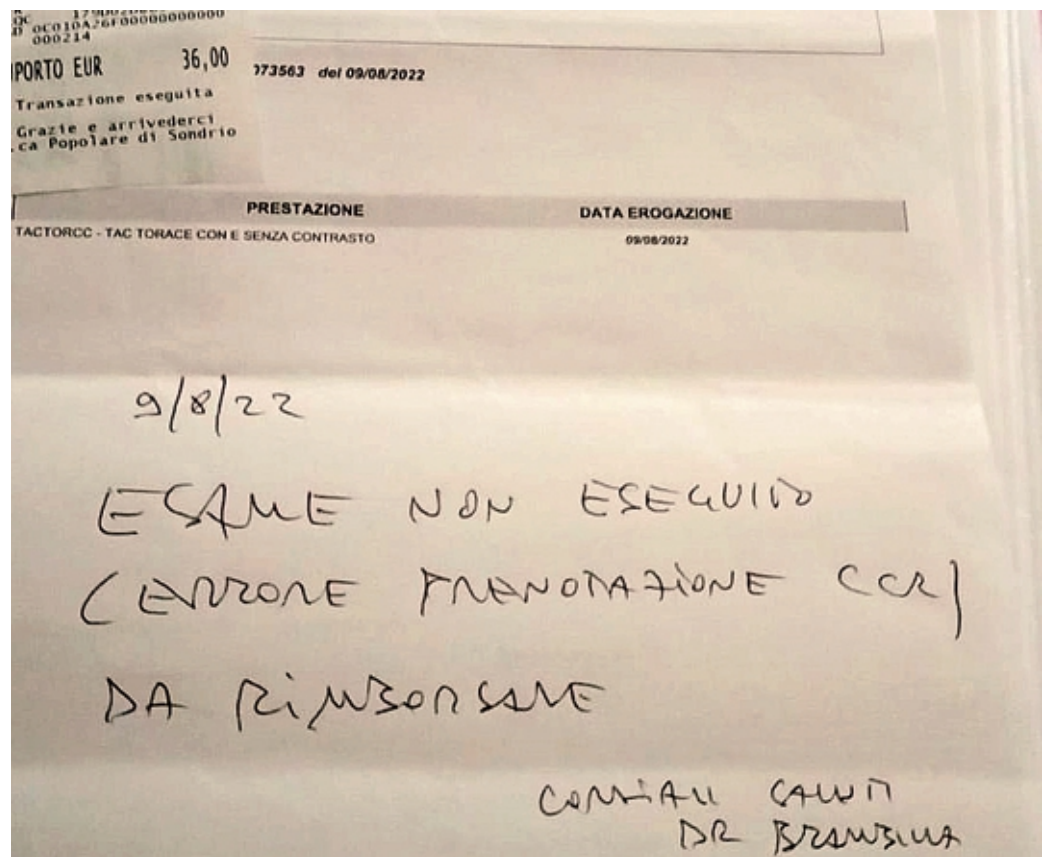 000214
PORTO EUR 36,00
Transazione eseguita
Grazie e arrivederci
ca Popolare di Sondrio
073563 del 09/08/2022
PRESTAZIONE DATA EROGAZIONE
TACTORCC - TAC TORACE CON E SENZA CONTRASTO 09/08/2022
9/8/22
ESAME NON ESEGUITO
(ERRORE PRENOTAZIONE CCR)
DA RIMBORSARE
CORDIALI SALUTI
DR BRAMBILLA